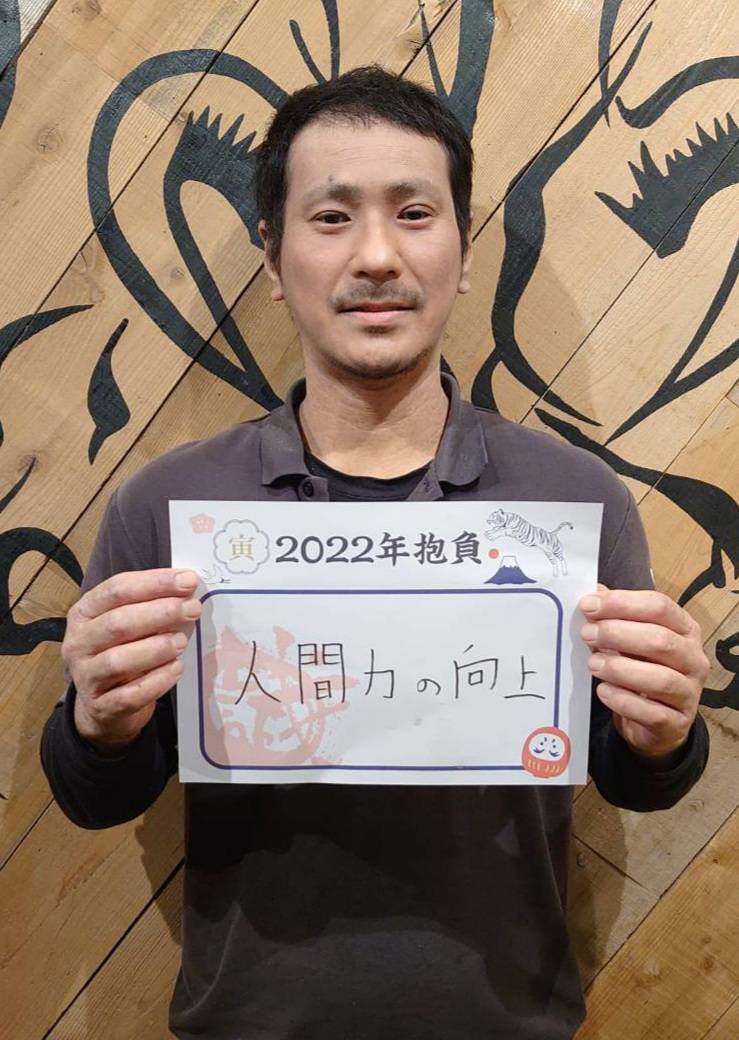 寅 2022年抱負
人間力の向上